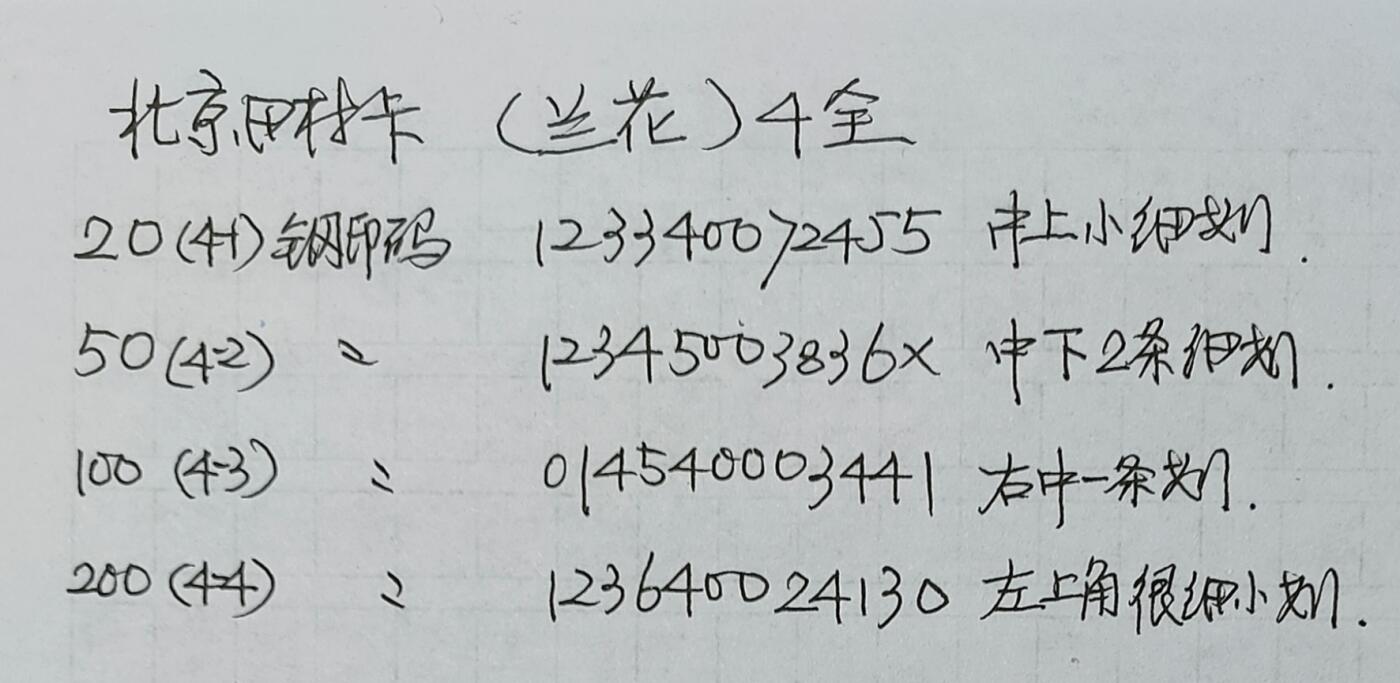 北京田村卡 (兰花) 4全
20 (4-1) 钢印码 123340072455 中上小细划.
50 (4-2) 〃 12345003836X 中下2条细划.
100 (4-3) 〃 014540003441 右中一条划.
200 (4-4) 〃 123640024130 左上角很细小划.